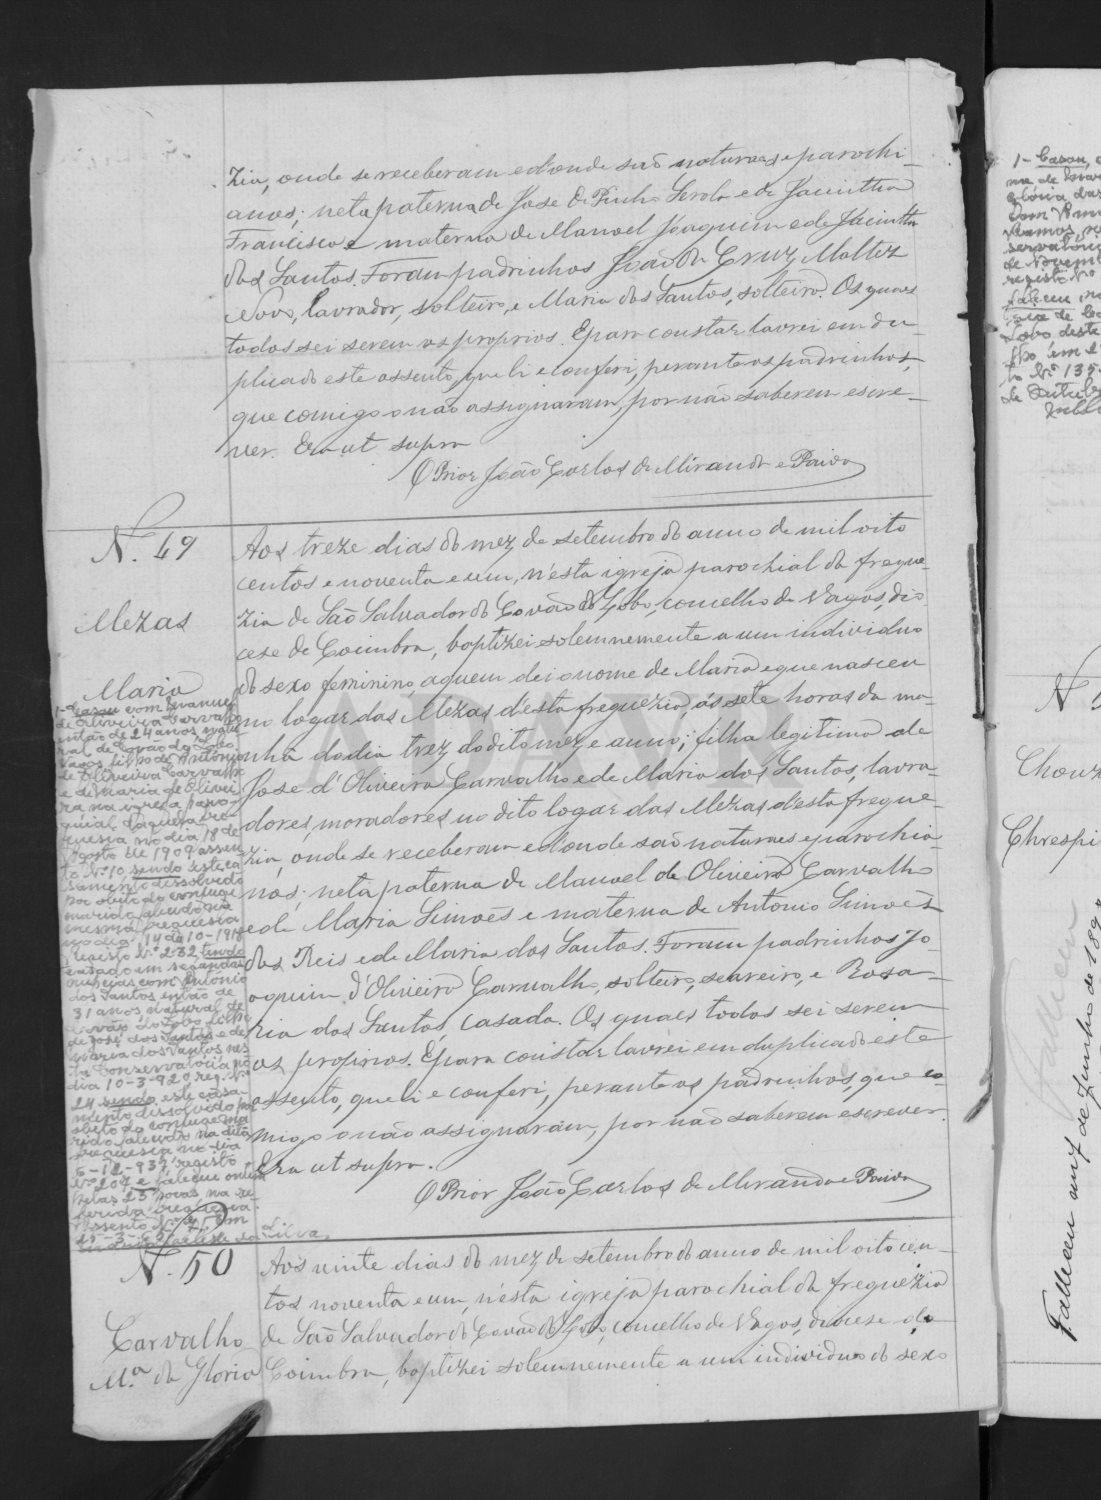 zia, onde se receberam e d'onde são naturaes e parochi-
anos; neta paterna de José de Pinho Serola e de Jacintha
Francisca e materna de Manoel Joaquim e de Jacintha
dos Santos. Foram padrinhos João da Cruz Maltez
Novo, lavrador, solteiro, e Maria dos Santos, solteira. Os quaes
todos sei serem os proprios. E para constar lavrei em du-
plicado este assento, que li e conferi, perante os padrinhos,
que comigo o não assignaram, por não saberem escre-
ver. Era ut supra
O Prior João Carlos de Miranda e Paiva
N. 49
Mezas
Maria
Aos treze dias do mez de setembro do anno de mil oito
centos e noventa e um, n'esta igreja parochial da fregue-
zia de São Salvador do Covão do Lobo, concelho de Vagos, dio
cese de Coimbra, baptizei solemnemente a um individuo
do sexo feminino, a quem dei o nome de Maria e que nasceu
no logar das Mezas d'esta freguezia, ás sete horas da ma-
nhã do dia trez do dito mez e anno; filha legitima de
José d'Oliveira Carvalho e de Maria dos Santos, lavra-
dores, moradores no dito logar das Mezas d'esta fregue-
zia, onde se receberam e d'onde são naturaes e parochia-
nos; neta paterna de Manoel de Oliveira Carvalho
e de Maria Simões e materna de Antonio Simões
dos Reis e de Maria dos Santos. Foram padrinhos Jo
aquim d'Oliveira Carvalho, solteiro, seareiro, e Rosa-
ria dos Santos, casada. Os quaes todos sei serem
os proprios. E para constar lavrei em duplicado este
assento, que li e conferi, perante os padrinhos, que co-
migo o não assignaram, por não saberem escrever.
Era ut supra.
O Prior João Carlos de Miranda e Paiva
1- Casou com Manuel
de Oliveira Carvalho
então de 24 anos natu-
ral de Covão do Lobo
Vagos, filho de António
de Oliveira Carvalho
e de Maria de Olivei-
ra na igreja paro-
quial daquela fre-
guesia no dia 18 de
Agosto de 1909 assen-
to Nº 10, sendo este ca-
samento dissolvido
por obito do conjuge
marido falecido na
mesma freguesia
no dia 14 de 10-1918
registo Nº 232, tendo
casado em segundas
nupcias com António
dos Santos então de
31 anos natural de
Covão do Lobo filho
de José dos Santos e de
Maria dos Santos nes-
ta Conservatória no
dia 10-3-920 reg. Nº
24 sendo este casa-
mento dissolvido por
obito do conjuge ma-
rido falecido na dita
freguesia no dia
-12-937 registo
Nº 207 e faleceu ontem
pelas 23 horas na re-
ferida freguesia
Assento Nº
Silva
N. 50
Carvalho
M.ª da Gloria
Aos vinte dias do mez de setembro do anno de mil oito cen-
tos noventa e um, n'esta igreja parochial da freguezia
de São Salvador do Covão do Lobo, concelho de Vagos, diocese de
Coimbra, baptizei solemnemente a um individuo do sexo
1- Casou,
registo Nº
Chouz
Chrespi
Falleceu
Falleceu em 7 de Junho de 189